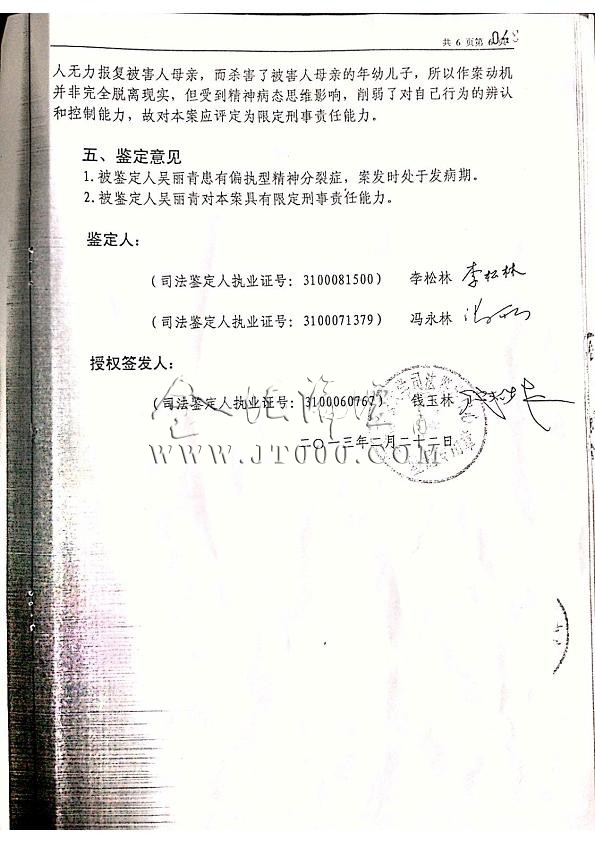 共 6 页第 6 页
人无力报复被害人母亲，而杀害了被害人母亲的年幼儿子，所以作案动机
并非完全脱离现实，但受到精神病态思维影响，削弱了对自己行为的辨认
和控制能力，故对本案应评定为限定刑事责任能力。
五、鉴定意见
1. 被鉴定人吴丽青患有偏执型精神分裂症，案发时处于发病期。
2. 被鉴定人吴丽青对本案具有限定刑事责任能力。
鉴定人：
（司法鉴定人执业证号：3100081500） 李松林 李松林
（司法鉴定人执业证号：3100071379） 冯永林
授权签发人：
（司法鉴定人执业证号：3100060767） 钱玉林
二〇一三年二月二十二日
www.JT000.com